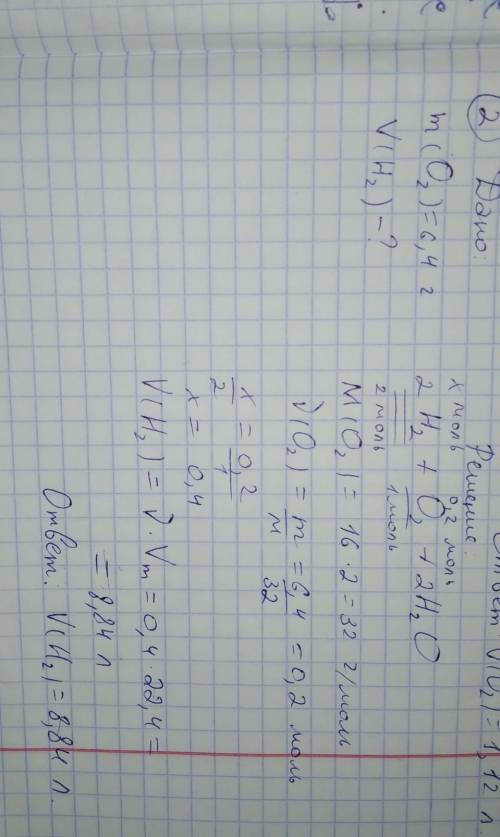 Ответ V(O₂) = 1,12 л
② Дано:
m(O₂) = 6,4 г
V(H₂) - ?
Решение:
x моль 0,2 моль
2H₂ + O₂ + 2H₂O
2 моль 1 моль
M(O₂) = 16 · 2 = 32 г/моль
ν(O₂) = m/M = 6,4/32 = 0,2 моль
x/2 = 0,2/1
x = 0,4
V(H₂) = ν · Vm = 0,4 · 22,4 =
= 8,84 л
Ответ: V(H₂) = 8,84 л.